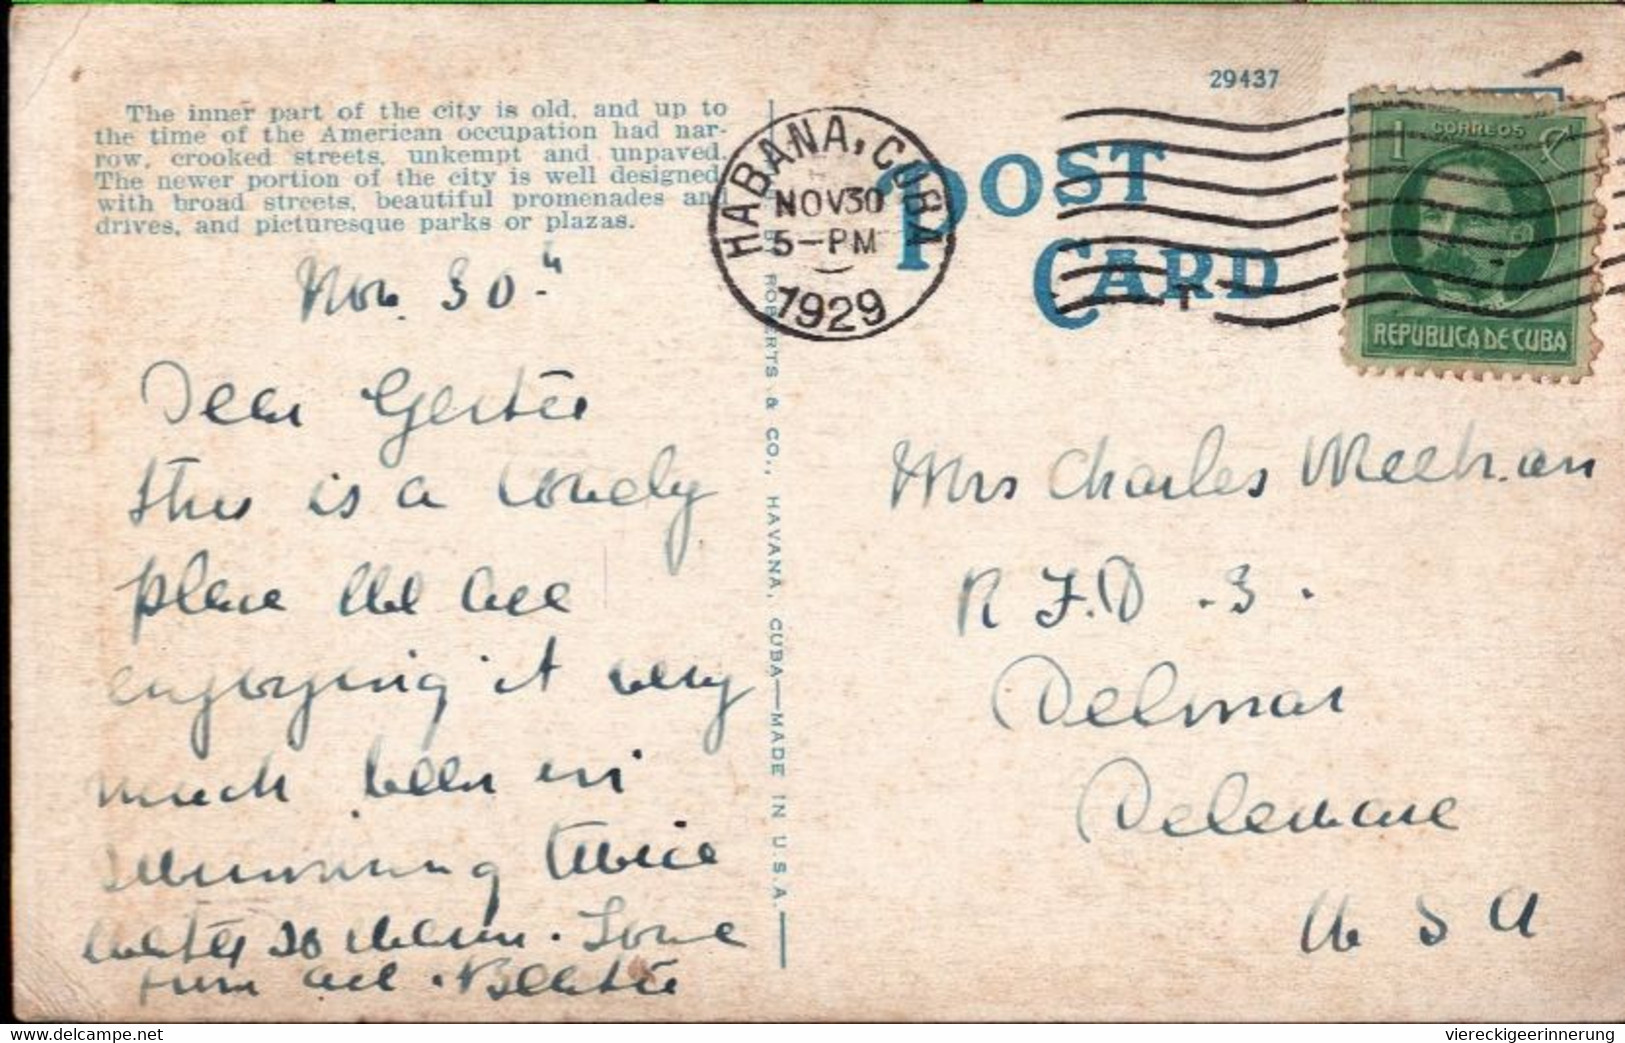 The inner part of the city is old, and up to
the time of the American occupation had nar-
row, crooked streets, unkempt and unpaved.
The newer portion of the city is well designed
with broad streets, beautiful promenades and
drives, and picturesque parks or plazas.
Nov. 30."
Dear Gertie
this is a lovely
place We are
enjoying it very
much been in
swimming twice
water so warm. Love
from all.
ROBERTS & CO., HAVANA, CUBA—MADE IN U.S.A.
HABANA, CUBA
NOV 30
5-PM
1929
29437
POST
CARD
1 CORREOS
REPUBLICA DE CUBA
Mrs Charles Meehan
R F.D. 3.
Delmar
Deleware
U S A
delcampe.net
viereckigeerinnerung